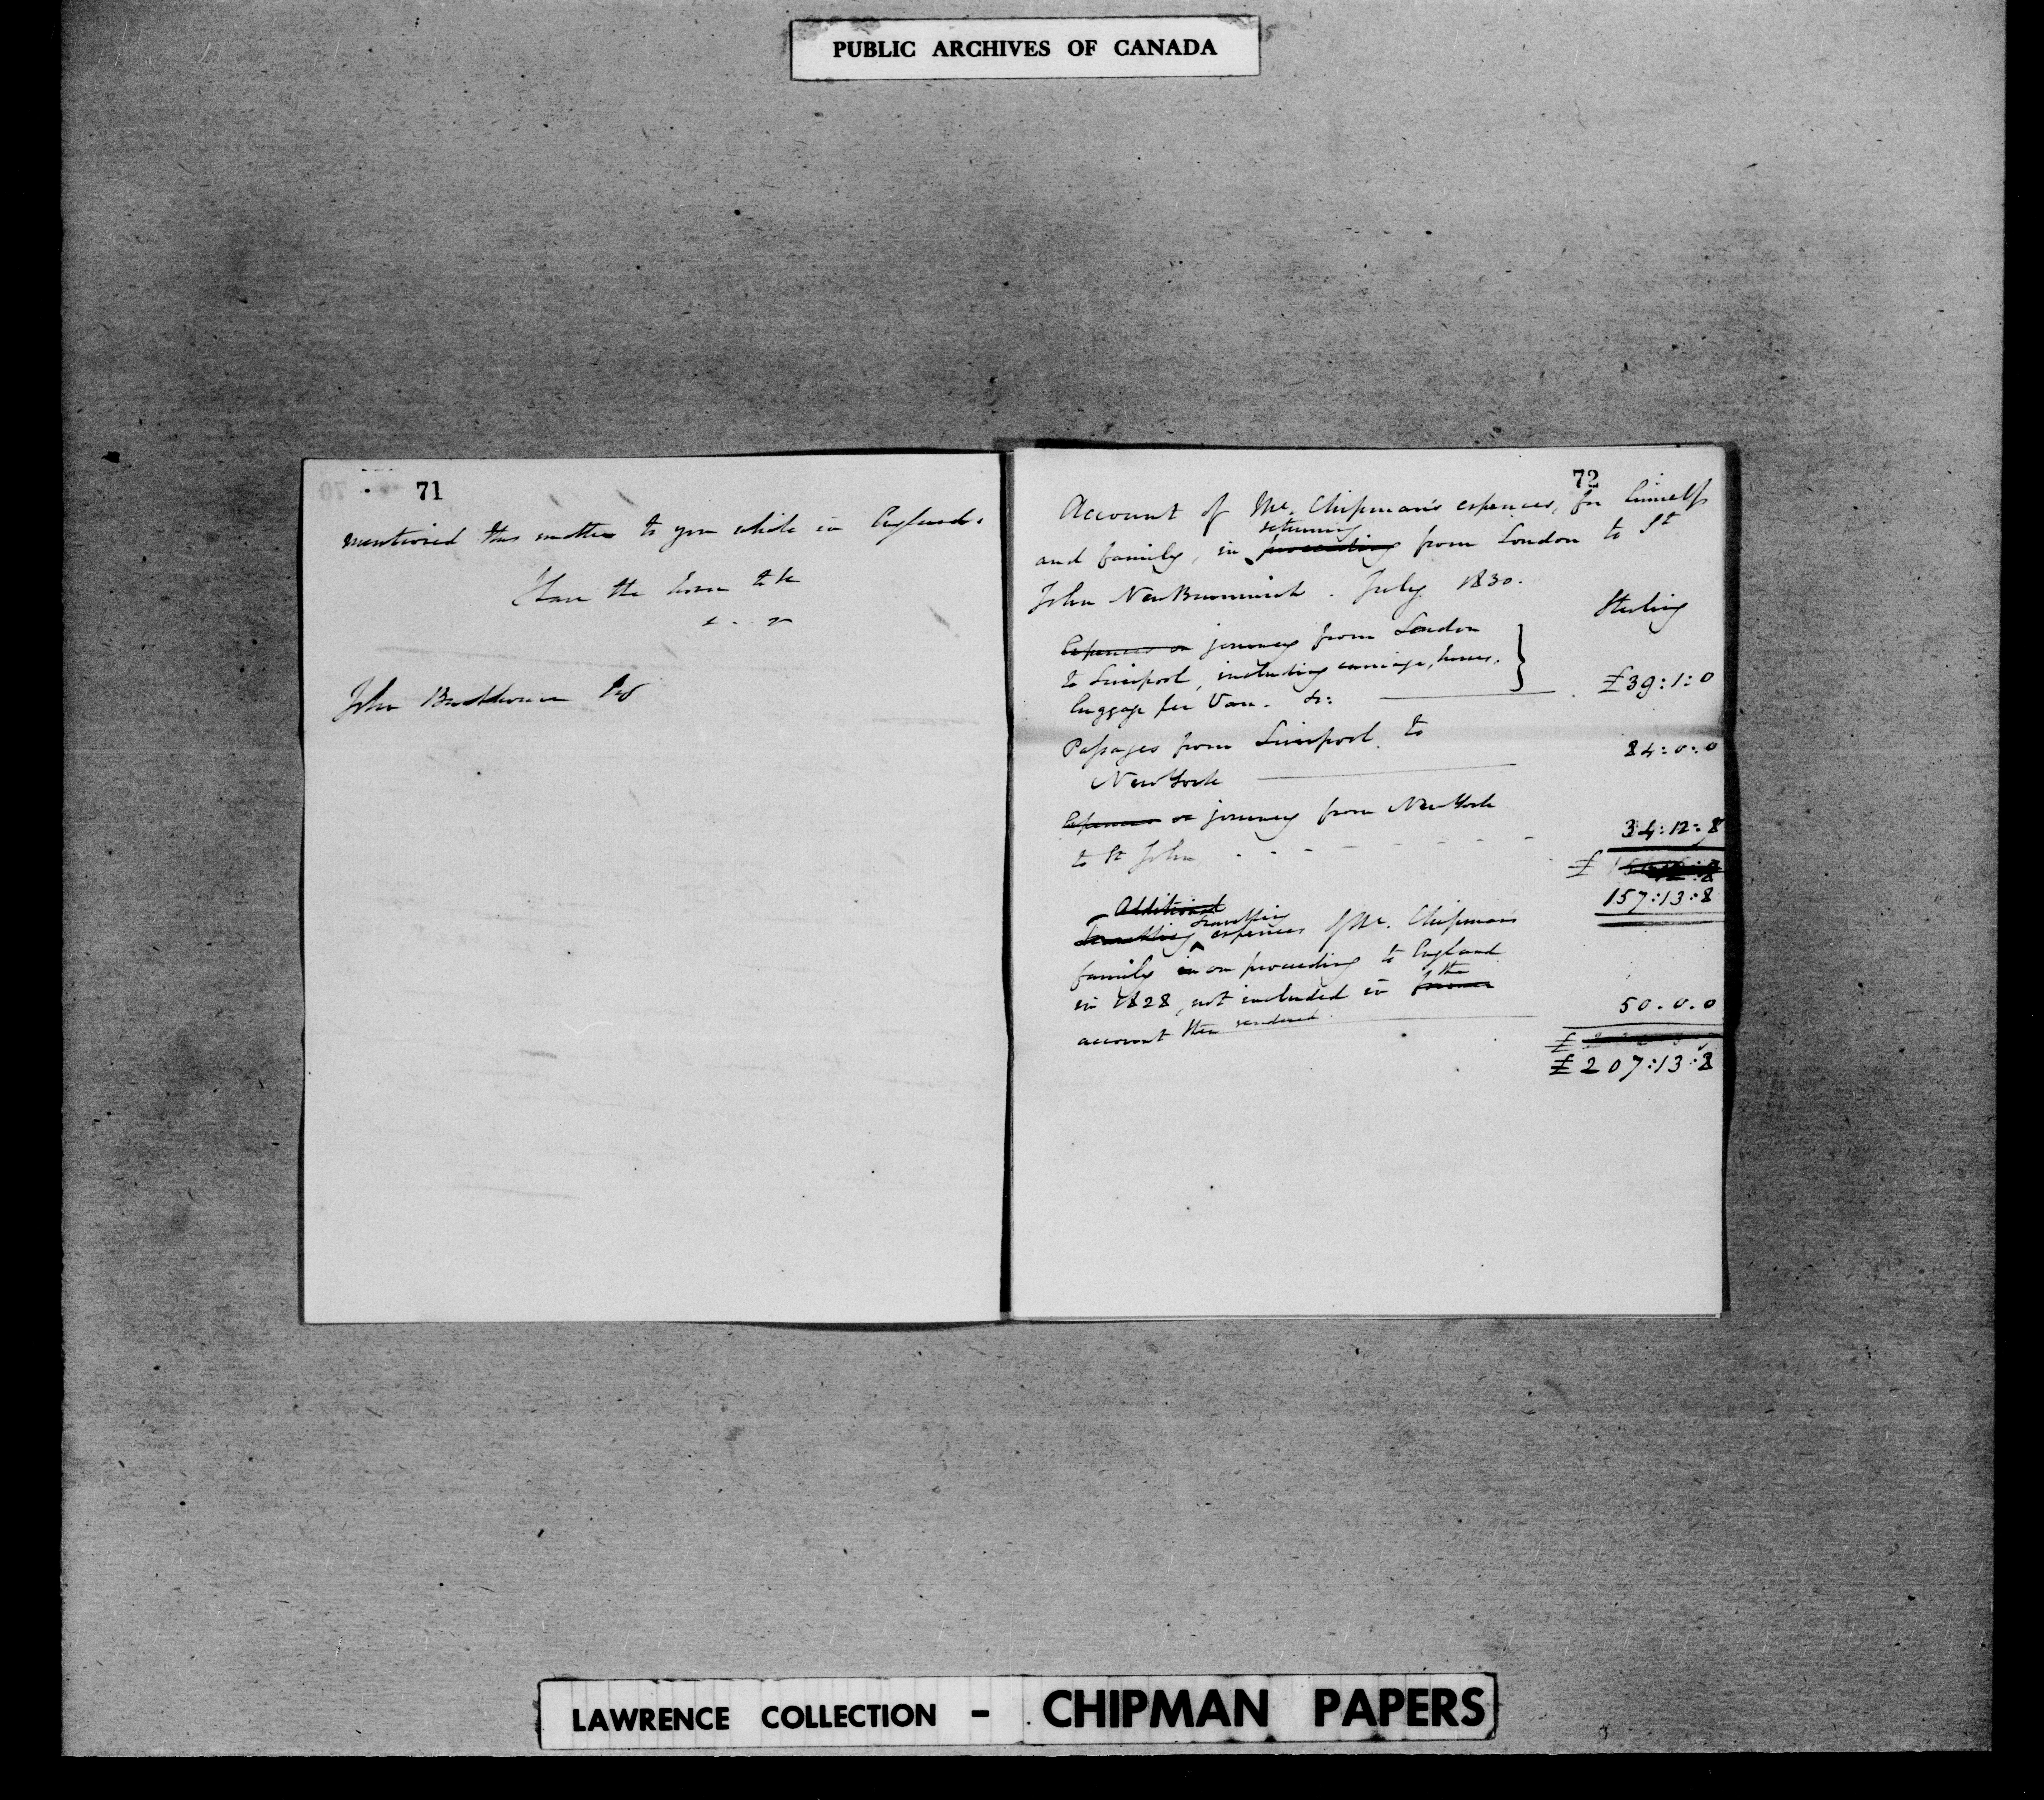 PUBLIC ARCHIVES OF CANADA
71
mentioned this matter to you while in England.
I have the honor to be
John Backhouse Esq
72
Account of Mr. Chipman's expences, for himself
returning
and family, in proceeding from London to St
John New Brunswick. July 1830.
Sterling
Expences on journey from London
to Liverpool, including carriage, horses,
luggage per Van. &c: £39:1:0
Passages from Liverpool to
New York 84:0:0
Expences on journey from New York
to St John 34:12:8
£
157:13:8
Additional
travelling
Travelling expences of Mr. Chipman's
family in on proceeding to England
the
in 1828, not included in former
account then rendered 50.0.0
£
£207:13:8
LAWRENCE COLLECTION - CHIPMAN PAPERS